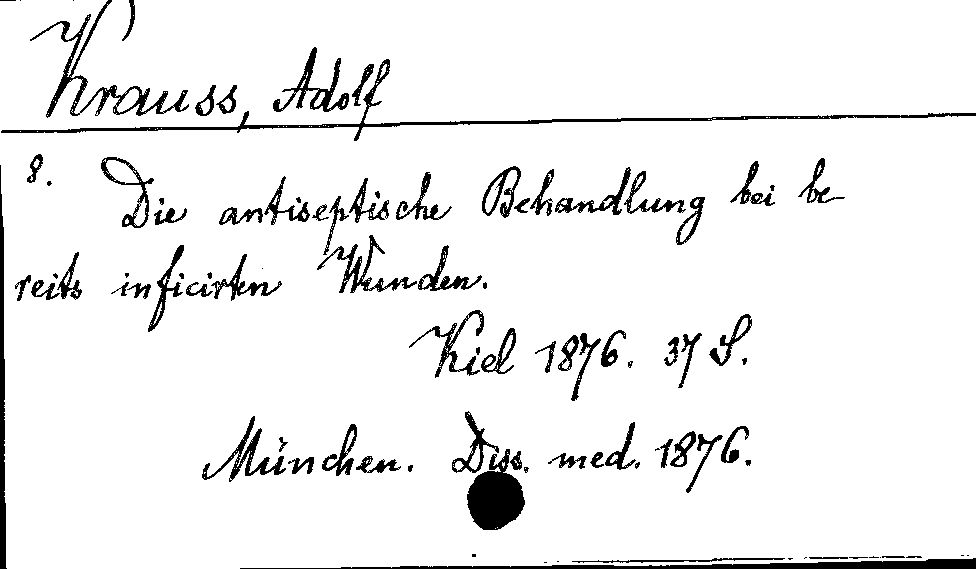 Krauss, Adolf
8. Die antiseptische Behandlung bei be-
reits inficirten Wunden.
Kiel 1876. 37 S.
München. Diss. med. 1876.